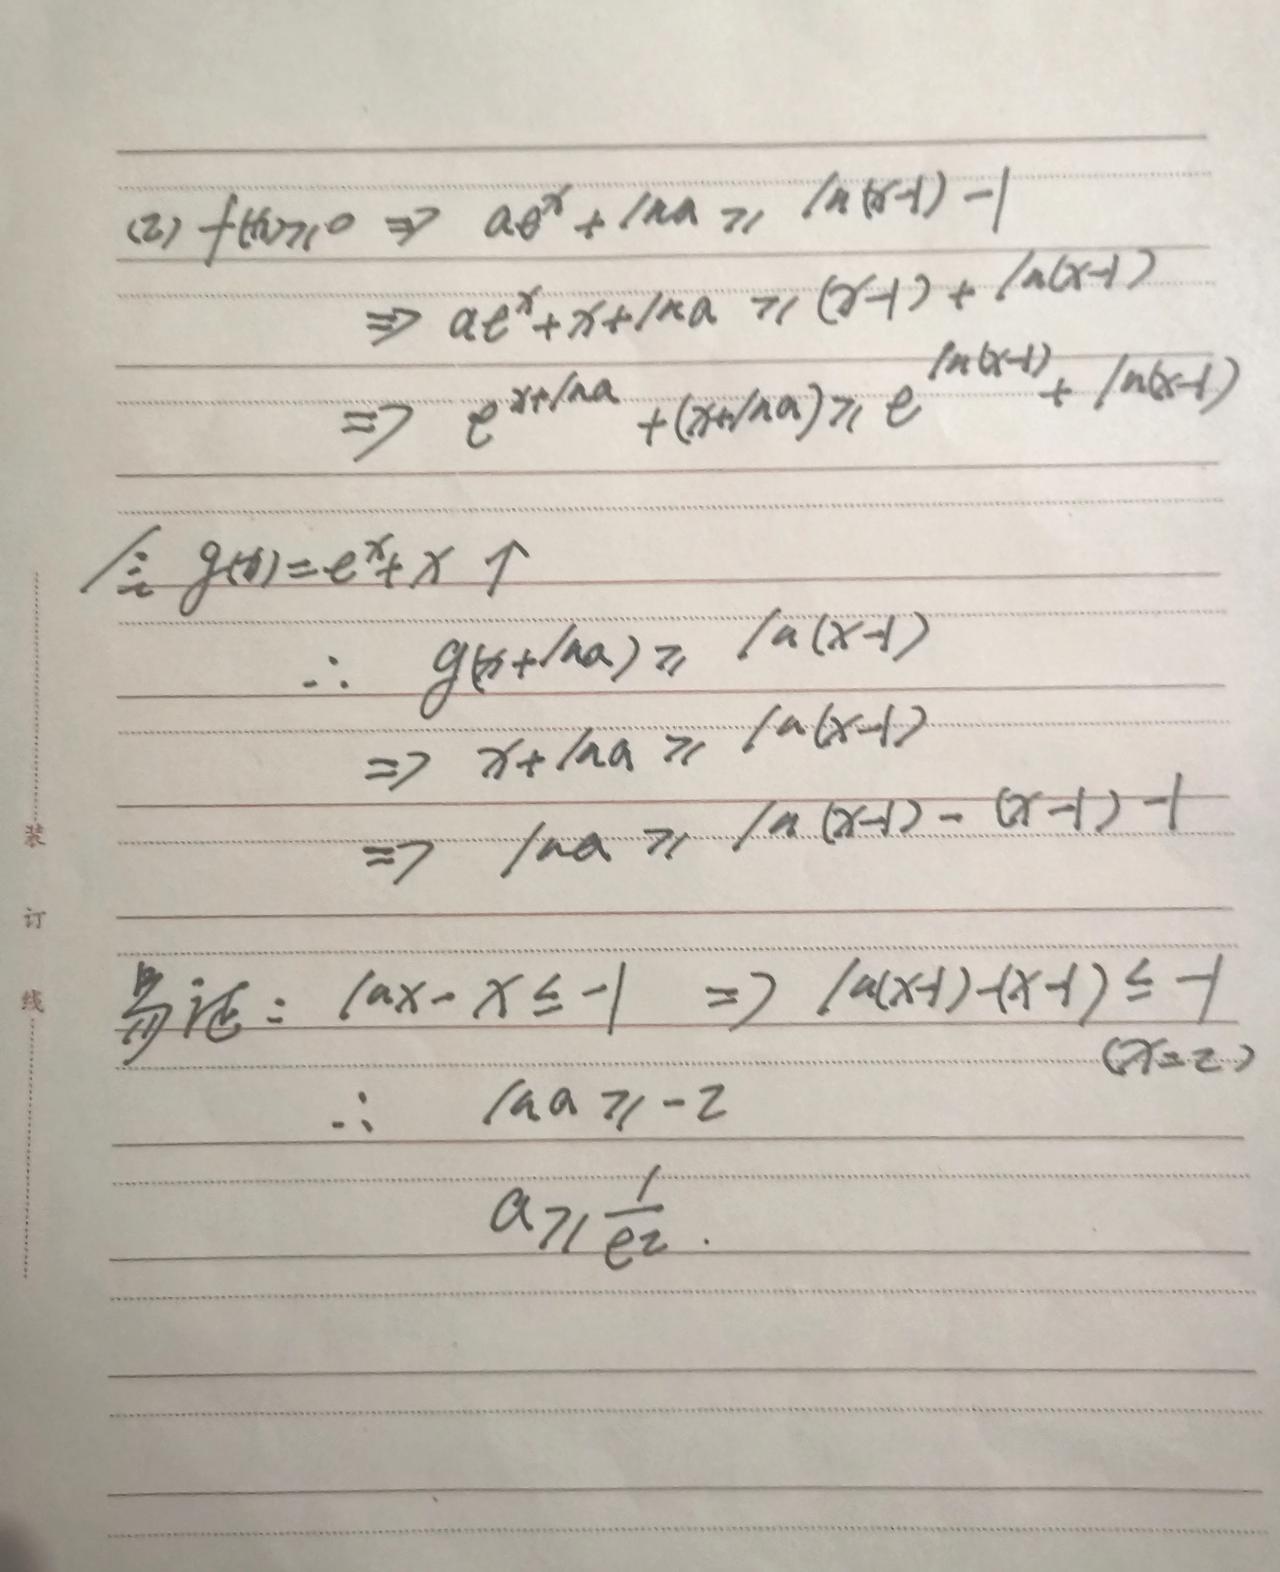 (2) f(x)≥0 ⇒ ae^x + lna ≥ ln(x-1) -1
⇒ ae^x + x + lna ≥ (x-1) + ln(x-1)
⇒ e^{x+lna} + (x+lna) ≥ e^{ln(x-1)} + ln(x-1)
令 g(x) = e^x + x ↑
∴ g(x+lna) ≥ ln(x-1)
⇒ x + lna ≥ ln(x-1)
⇒ lna ≥ ln(x-1) - (x-1) -1
易证: lnx - x ≤ -1 ⇒ ln(x-1)-(x-1) ≤ -1
(x=2)
∴ lna ≥ -2
a ≥ 1/e^2 .
装
订
线